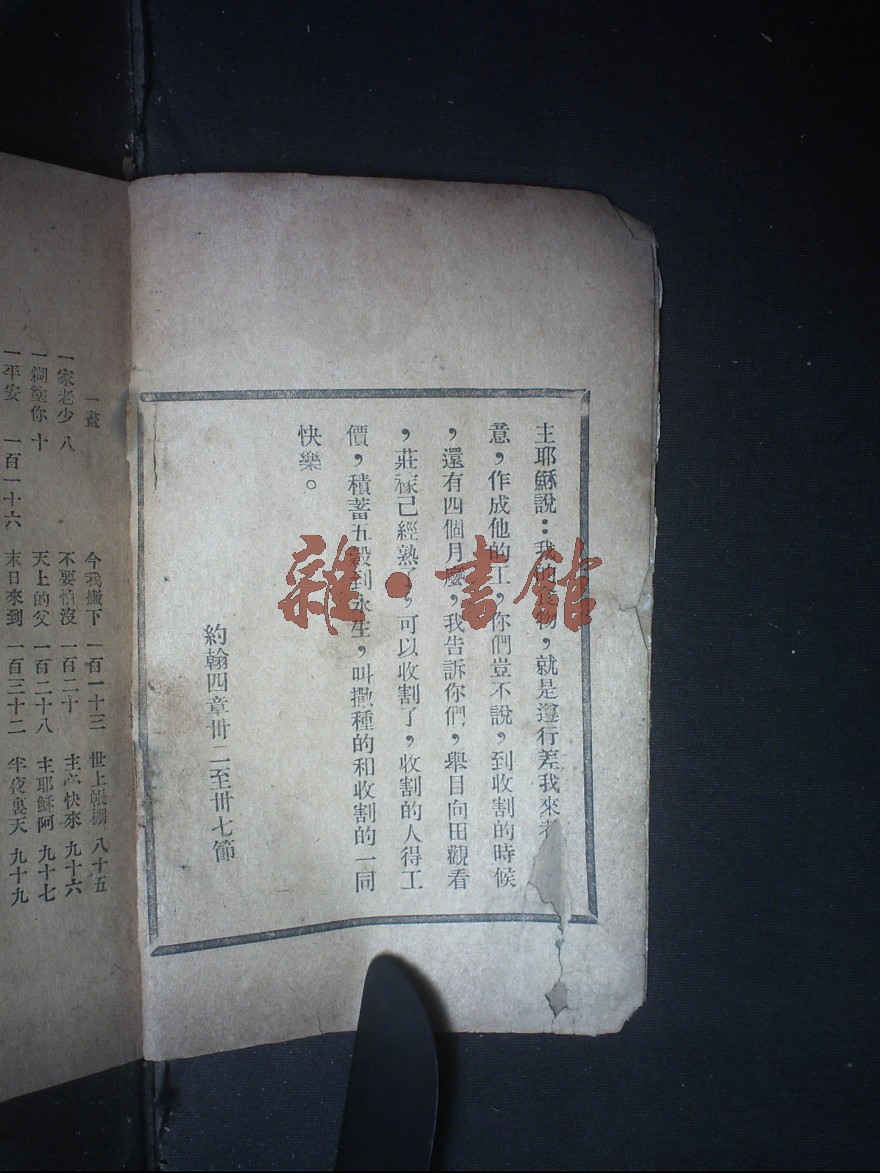 主耶穌說：我的食物，就是遵行差我來者
意，作成他的工，你們豈不說，到收割的時候
，還有四個月麼，我告訴你們，舉目向田觀看
，莊稼已經熟了，可以收割了，收割的人得工
價，積蓄五穀到永生，叫撒種的和收割的一同
快樂。
約翰四章卅二至卅七節
雜·書館
一畫
今我搬下 一百一十三
世上帳棚 八十五
一家老少 八
不要怕沒 一百二十
快來 九十六
一糊塗你 十
天上的父 一百二十八
主耶穌阿 九十七
一平安 一百一十六
末日來到 一百三十二
半夜裏天 九十九